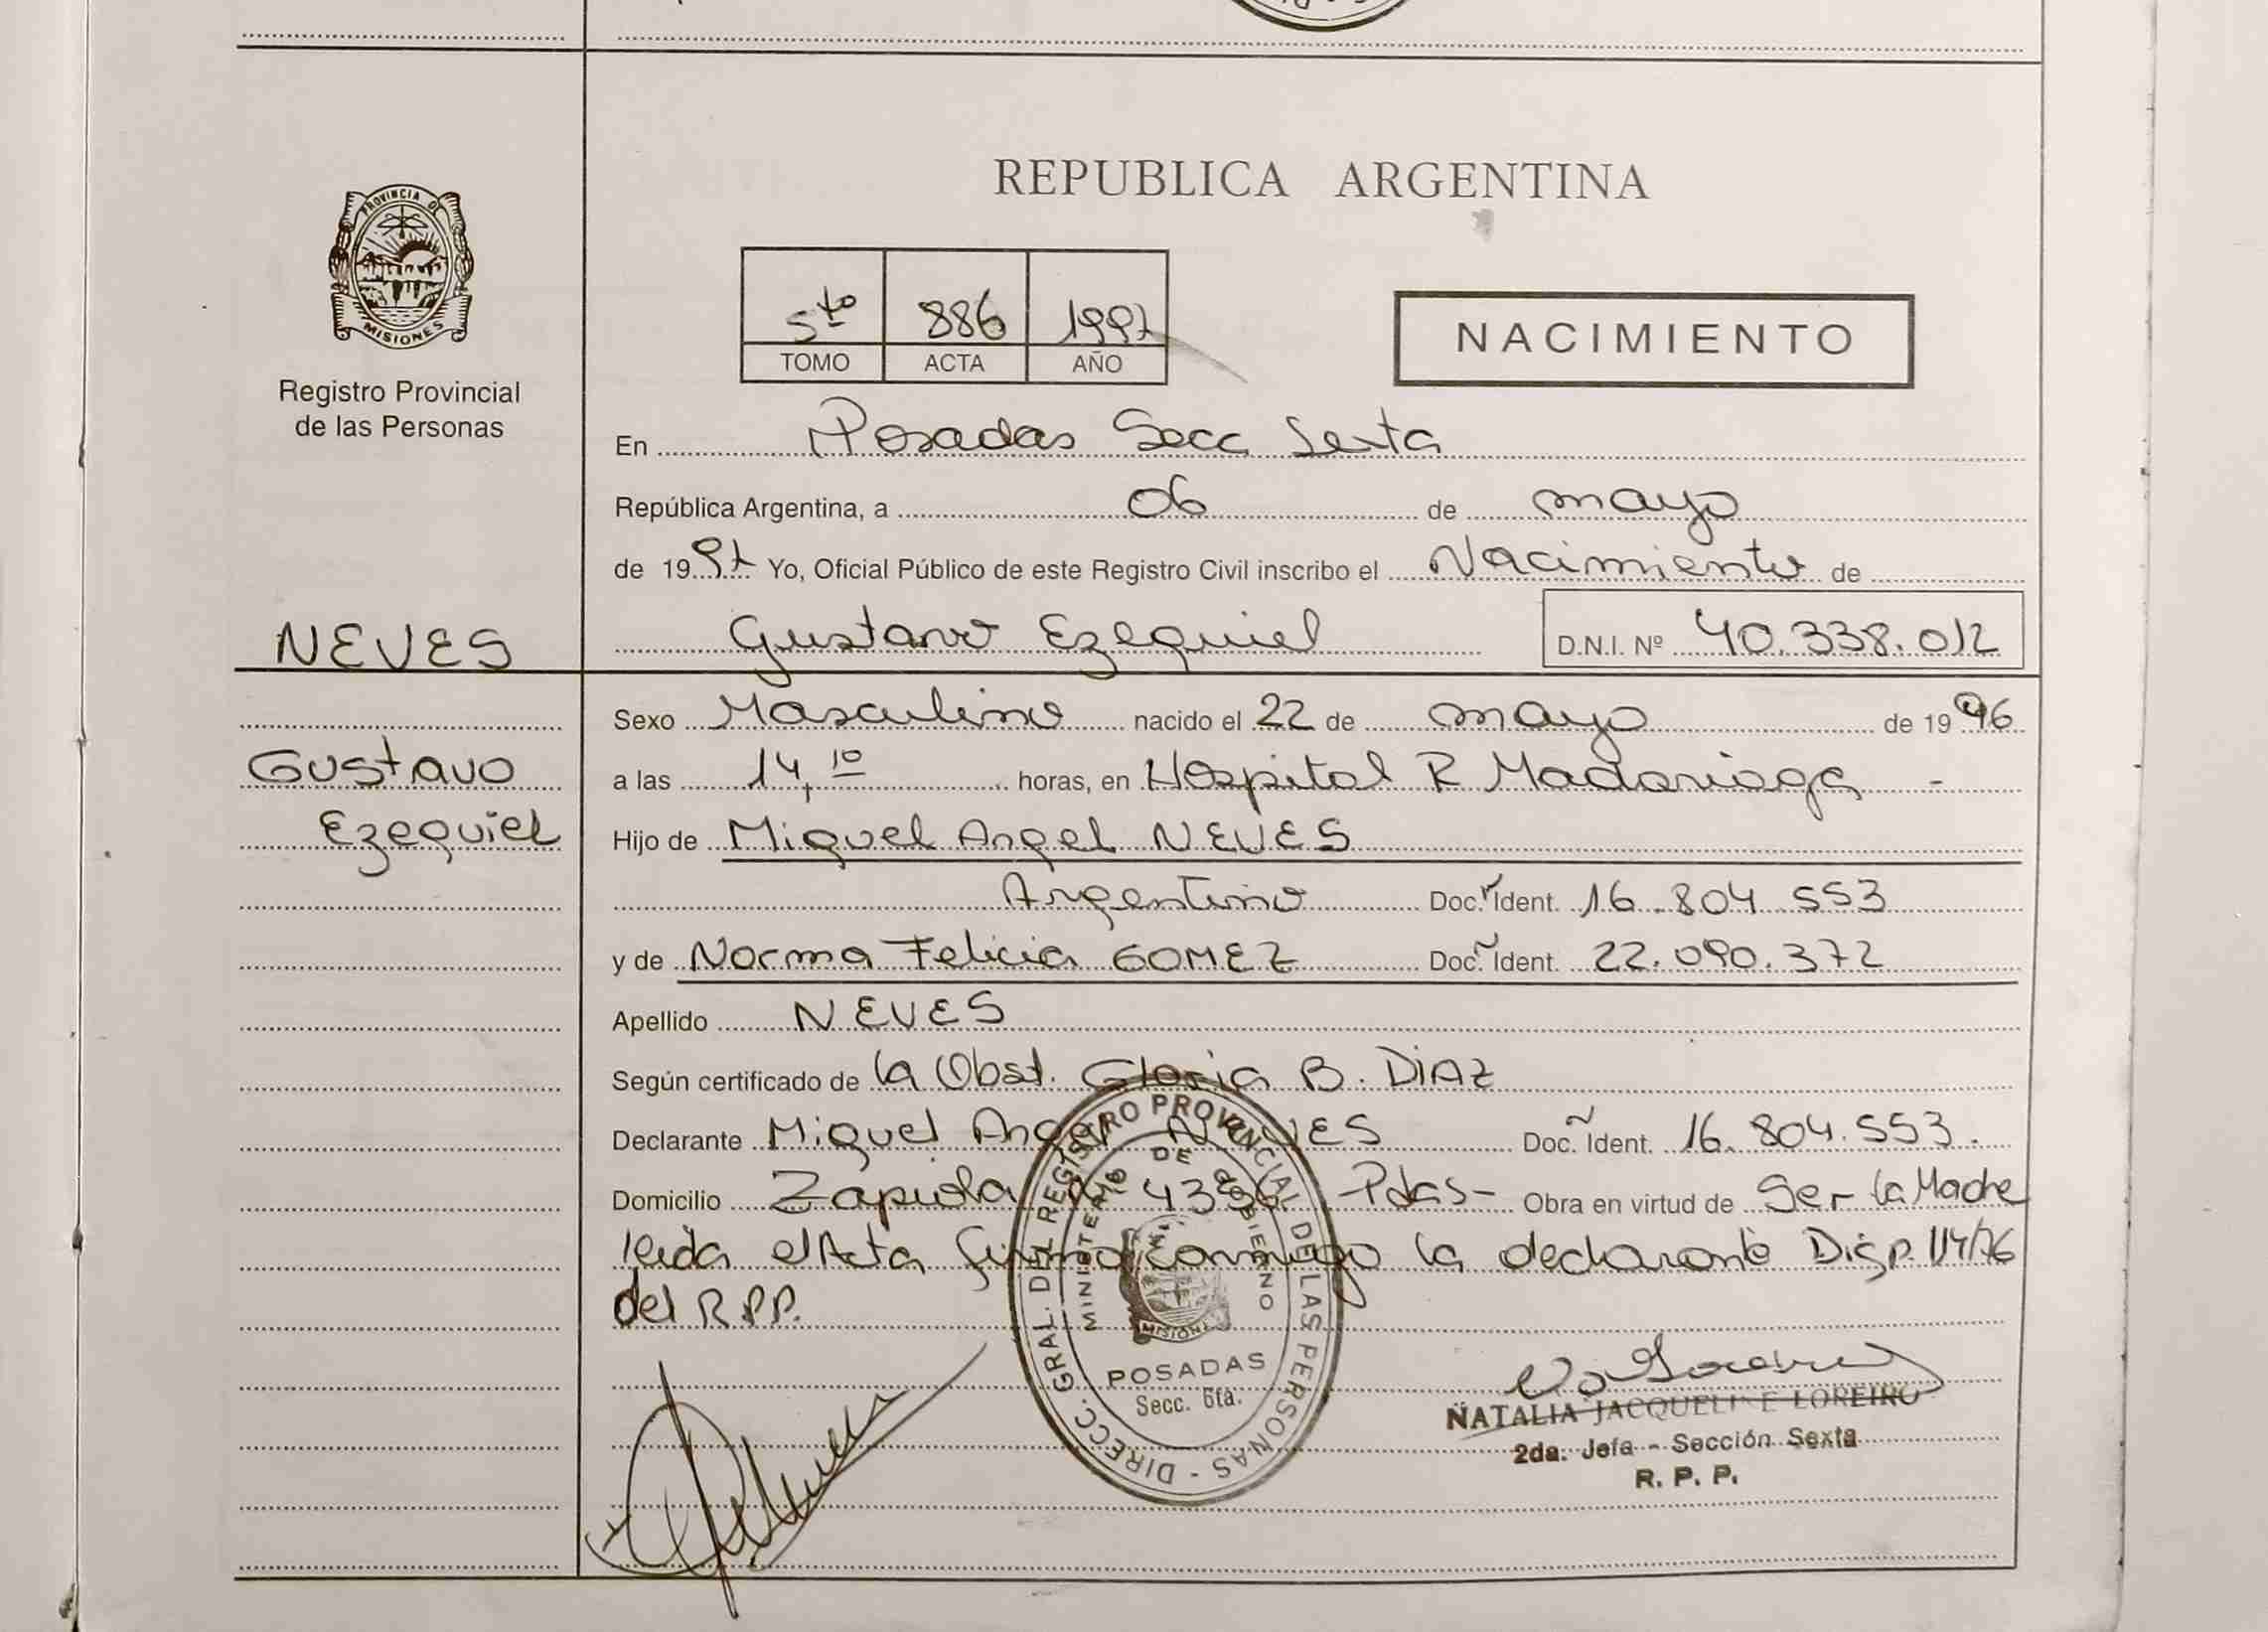 REPUBLICA ARGENTINA
PROVINCIA DE
MISIONES
Registro Provincial
de las Personas
5to 886 1997
TOMO ACTA AÑO
NACIMIENTO
En Posadas Secc Sexta
República Argentina, a 06 de mayo
de 1997 Yo, Oficial Público de este Registro Civil inscribo el Nacimiento de
NEVES
Gustavo Ezequiel D.N.I. Nº 40.338.012
Sexo Masculino nacido el 22 de mayo de 1996
Gustavo
a las 14,10 horas, en Hospital R Madariaga -
Ezequiel
Hijo de Miguel Angel NEVES
Argentino Doc. Ident. 16.804.553
y de Norma Felicia GOMEZ Doc. Ident. 22.090.372
Apellido NEVES
Según certificado de la Obst. Gloria B. DIAZ
Declarante Miguel Angel NEVES Doc. Ident. 16.804.553.
Domicilio Zapiola Pdas- Obra en virtud de Ser la Madre
leida el Acta firma conmigo la declarante Disp. 114/76
del R.P.P.
DIRECC. GRAL. DEL REGISTRO PROVINCIAL DE LAS PERSONAS -
MINISTERIO DE GOBIERNO
MISIONES
POSADAS
Secc. 6ta.
NATALIA JACQUELINE LOREIRO
2da. Jefa - Sección Sexta
R. P. P.